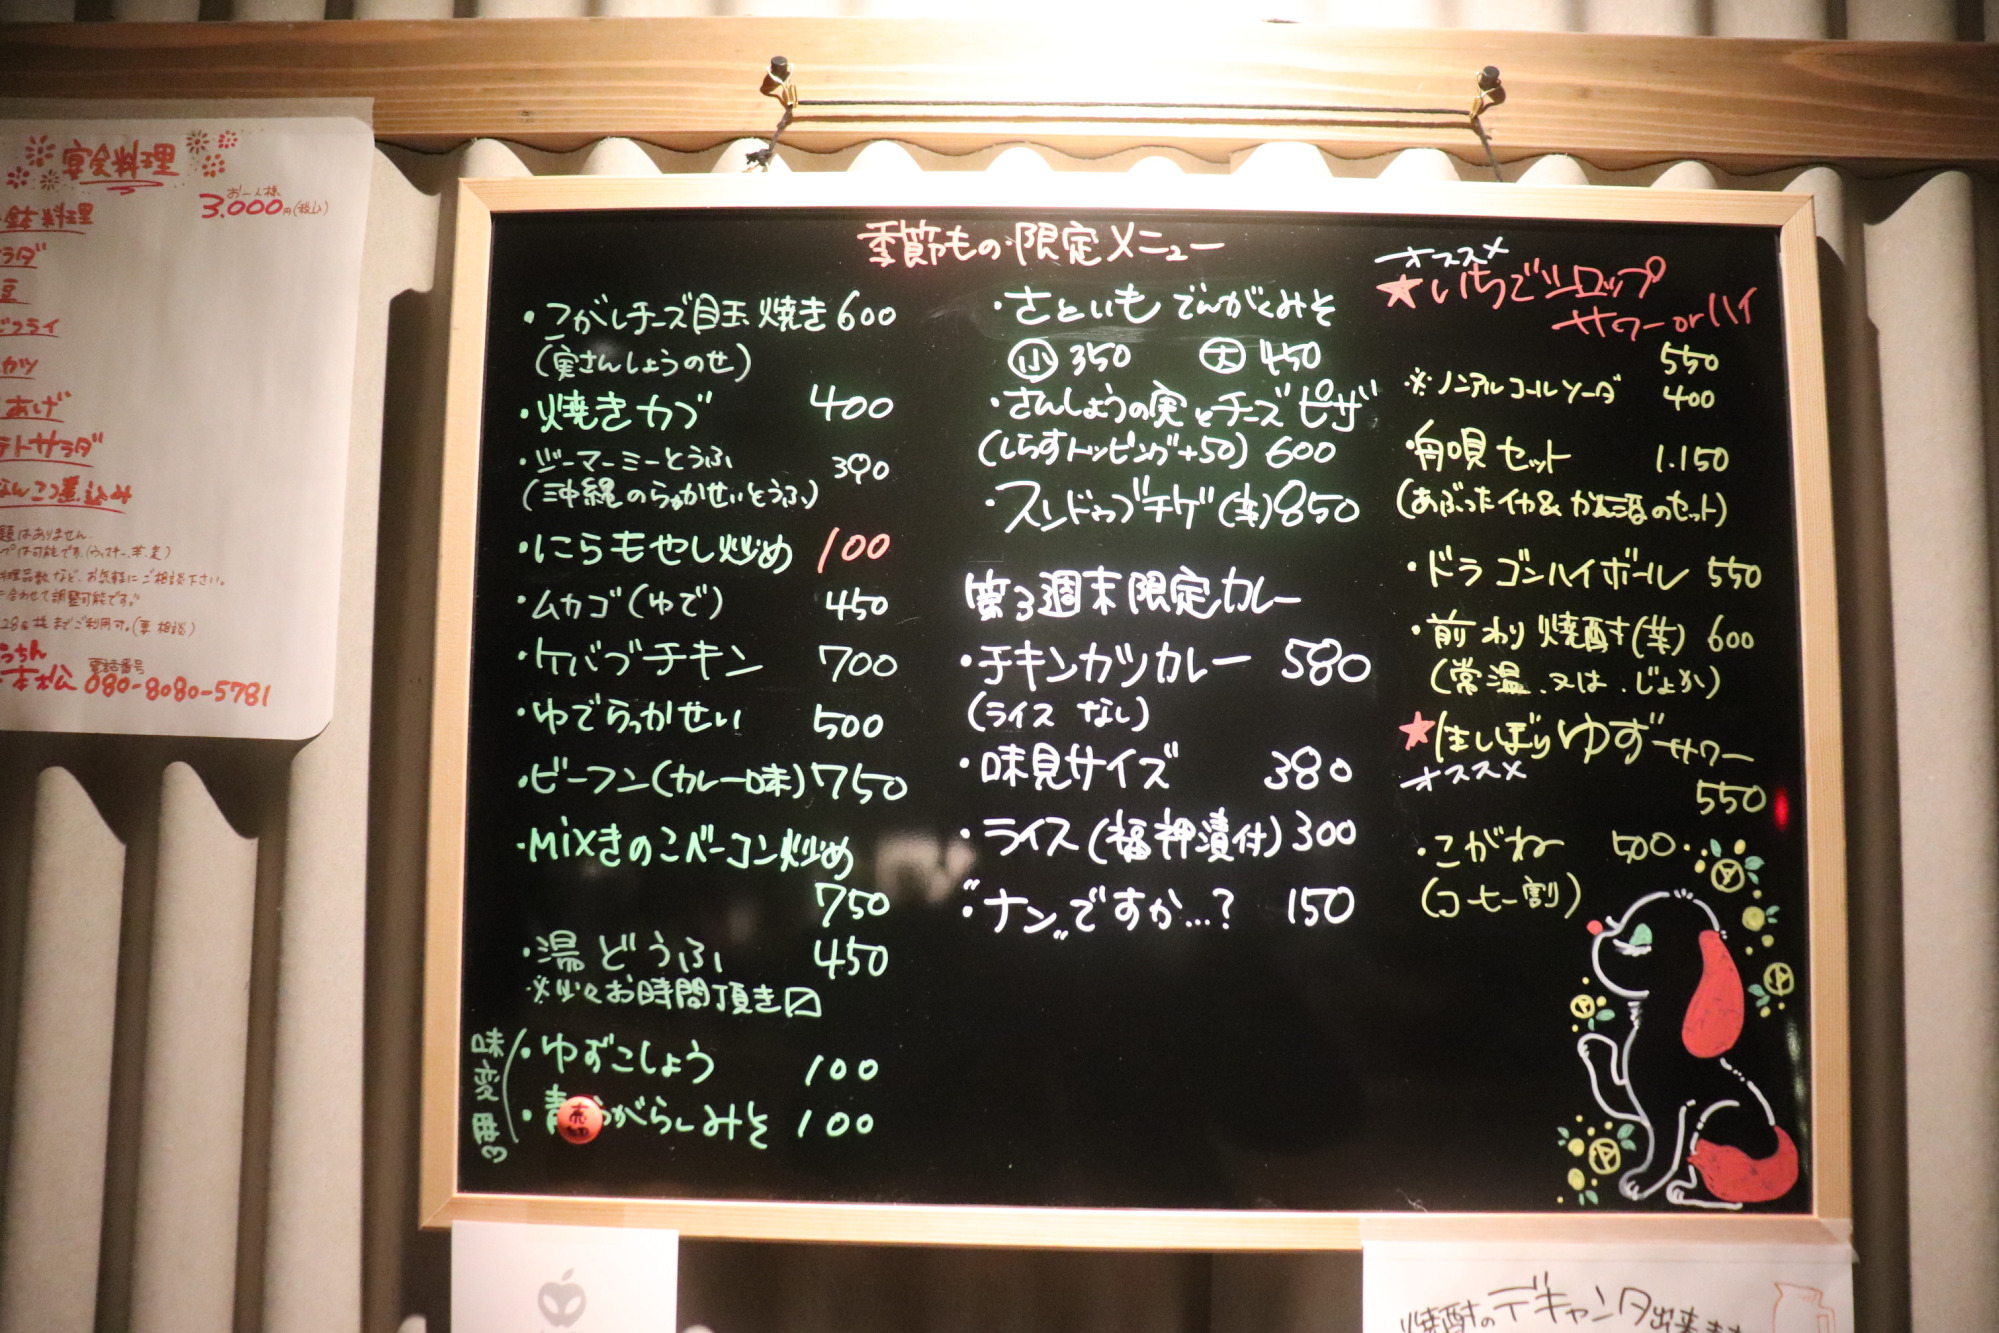 宴会料理
お一人様
3.000円(税込)
鉢料理
ラダ
豆
フライ
カツ
あげ
テトサラダ
なんこつ煮込み
題はありません。
プは可能です。(ウィスキー、芋、麦)
料理品数など、お気軽にご相談下さい。
合わせて調整可能です。
28名様までご利用可。(要相談)
っちん
本松 電話番号
080-8080-5781
季節もの・限定メニュー
・こがしチーズ目玉焼き 600
(実さんしょうのせ)
・焼きカブ 400
・ジーマーミーとうふ 390
(沖縄のらっかせいとうふ)
・にらもやし炒め 100
・ムカゴ(ゆで) 450
・ケバブチキン 700
・ゆでらっかせい 500
・ビーフン(カレー味) 750
・MIXきのこベーコン炒め
750
・湯どうふ 450
※少々お時間頂き〼
味変用
・ゆずこしょう 100
・青 うがらしみそ 100
売切
・さといも でんがくみそ
小 350 大 450
・さんしょうの実とチーズピザ
(しらすトッピング+50) 600
・スンドゥブチゲ(辛) 850
第3週末限定カレー
・チキンカツカレー 580
(ライスなし)
・味見サイズ 380
・ライス(福神漬付) 300
・"ナン"ですか…? 150
オススメ
★いちごシロップ
サワー or ハイ
550
※ノンアルコールソーダ 400
・舟唄セット 1.150
(あぶったイカ&かん酒のセット)
・ドラゴンハイボール 550
・前わり焼酎(芋) 600
(常温.又は.じょか)
★生しぼりゆずサワー
オススメ
550
・こがね 500
(コーヒー割)
焼酎のデキャンタ出来ます